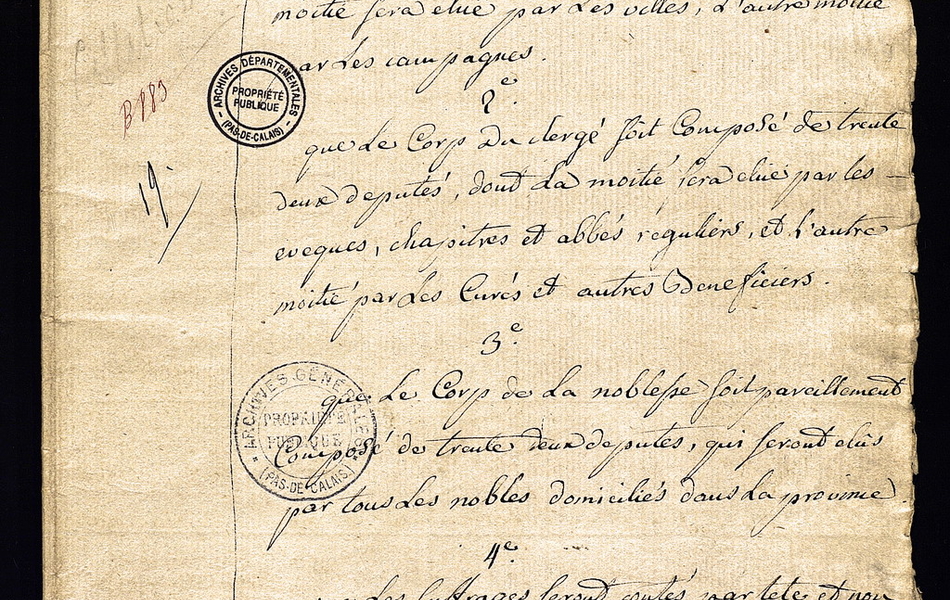 moitié sera elue par Les villes, L'autre moitié
par Les campagnes.
2e.
que Le Corp Du clergé soit Composé de trente
deux deputés, dont La moitié sera elüe par les
eveques, chapitres et abbés réguliers, et L'autre
moitié par Les Curés et autres Beneficiers.
3e.
que Le Corp de La noblesse soit pareillement
Composé de trente deux deputés, qui seront elus
par tous Les nobles domiciliés dans La province.
4e.
Les suffrages seront contés par tete et non
B 883
19.
ARCHIVES DÉPARTEMENTALES
PROPRIÉTÉ
PUBLIQUE
(PAS-DE-CALAIS)
ARCHIVES GÉNÉRALES
PROPRIÉTÉ
PUBLIQUE
(PAS-DE-CALAIS)